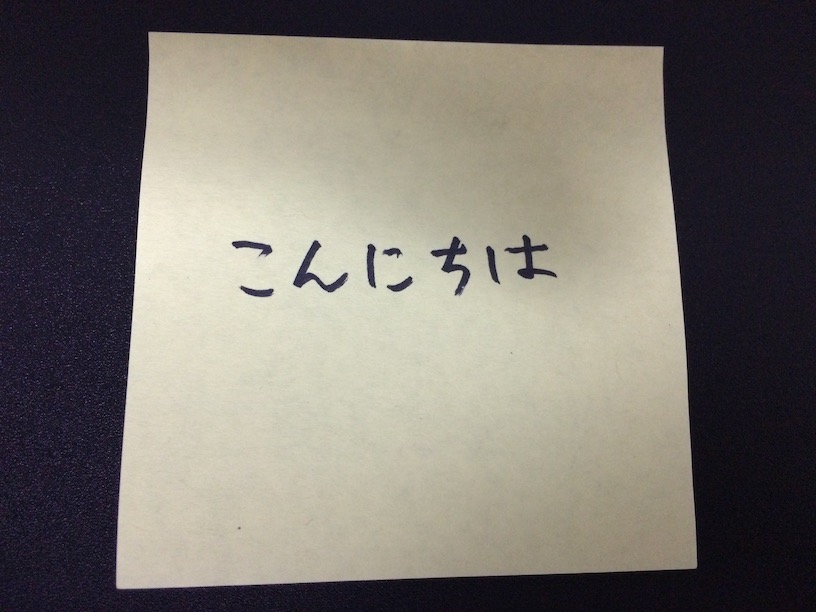 こんにちは